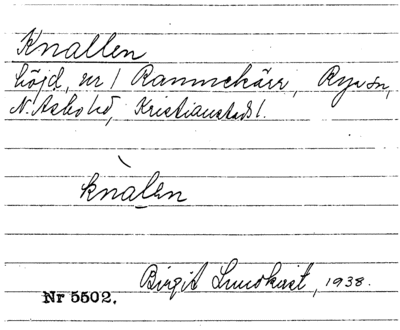 Knallen
höjd, nr 1 Rammekärr, Rya sn,
N. Åsbo hd, Kristianstads l.
knalen
Birgit Lundkvist, 1938.
Nr 5502.